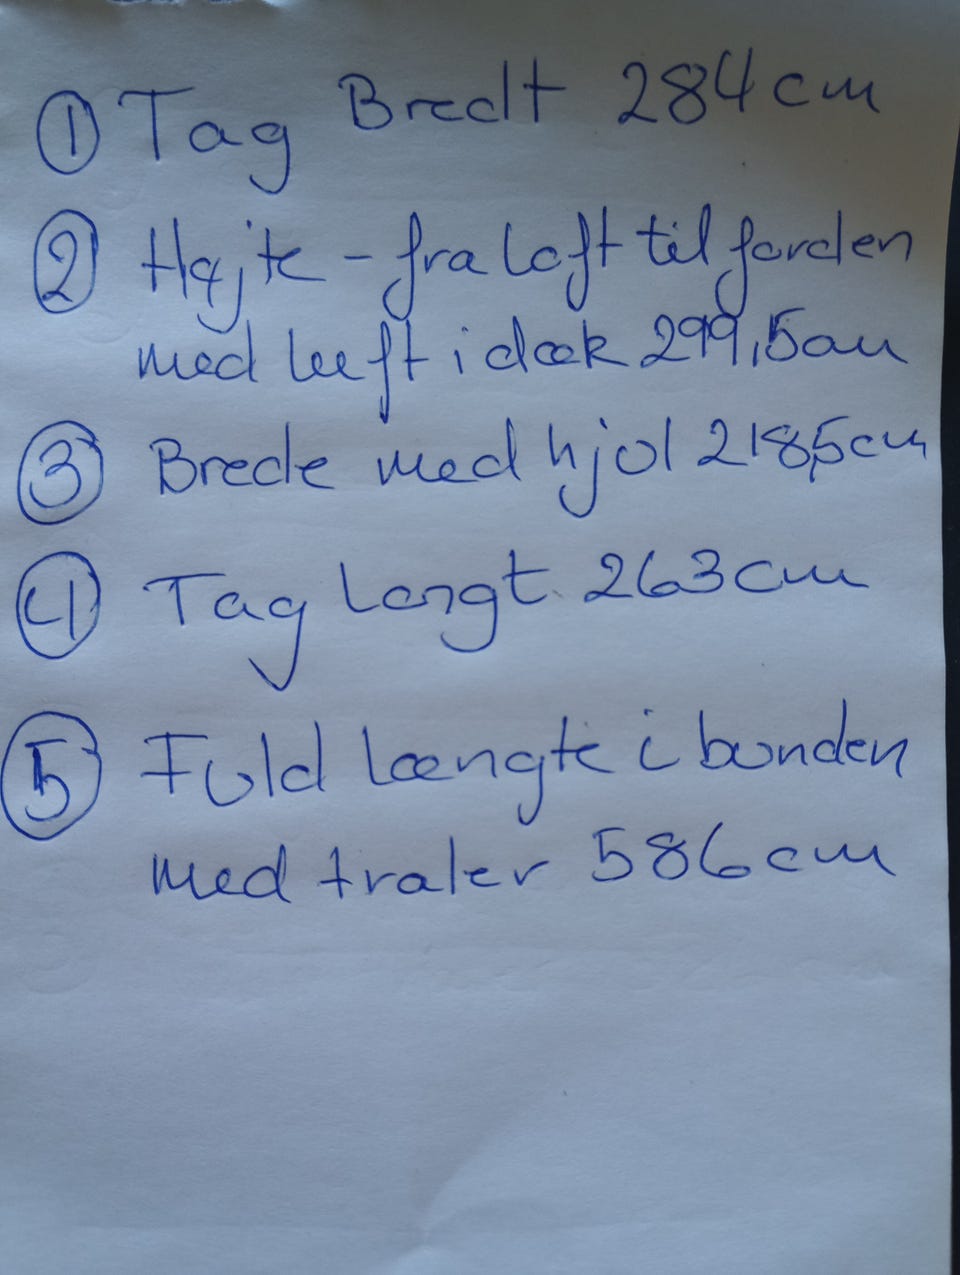 ① Tag Bredt 284 cm
② Højte - fra loft til forden
med luft i dæk 299,5 cm
③ Brede med hjul 218,5 cm
④ Tag Længt 263 cm
⑤ Fuld længte i bunden
med traler 586 cm